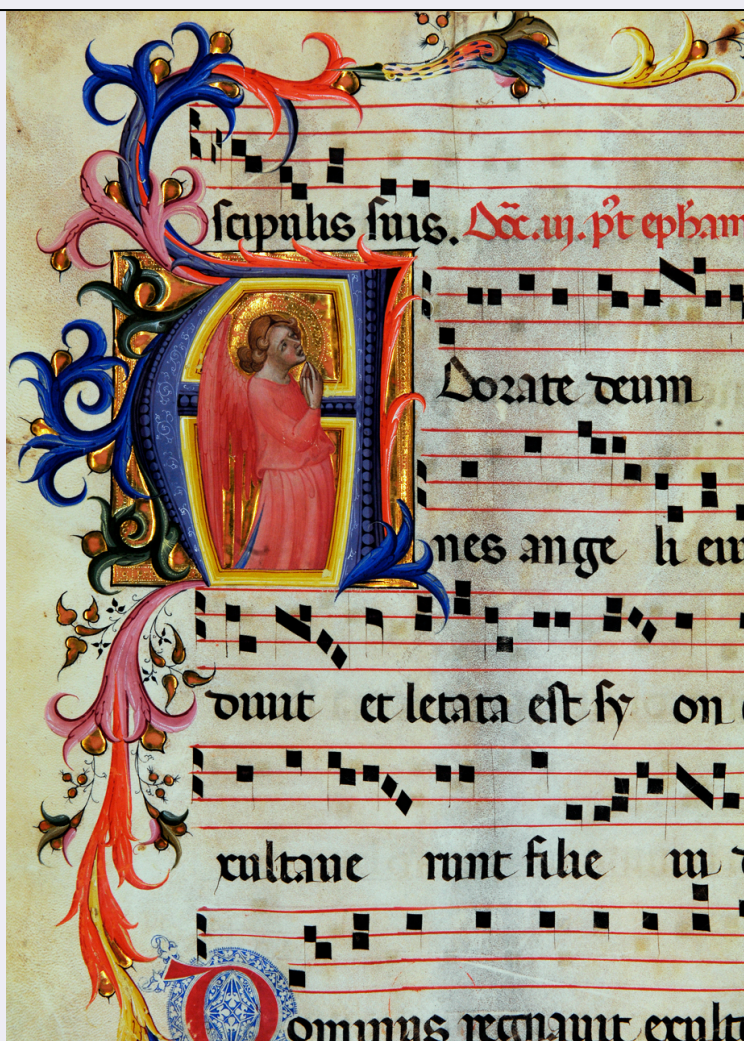 scipulis suis. Dōc. iij. p̄t epham
Adorate deum
nes ange li eiu
diuit et letata est sy on
exultaue runt filie iu d
Dominus regnauit exulte